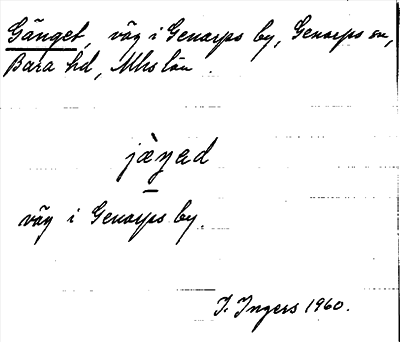 Gänget, väg i Genarps by, Genarps sn,
Bara hd, Mhs län.
jàŋad
väg i Genarps by.
I. Ingers 1960.